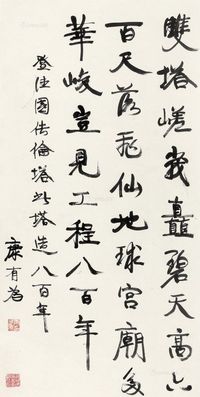 雙塔嵯峩矗碧天高六
百尺飛仙地球宮廟多
華峻豈見工程八百年
登德國佉倫塔此塔造八百年
康有為